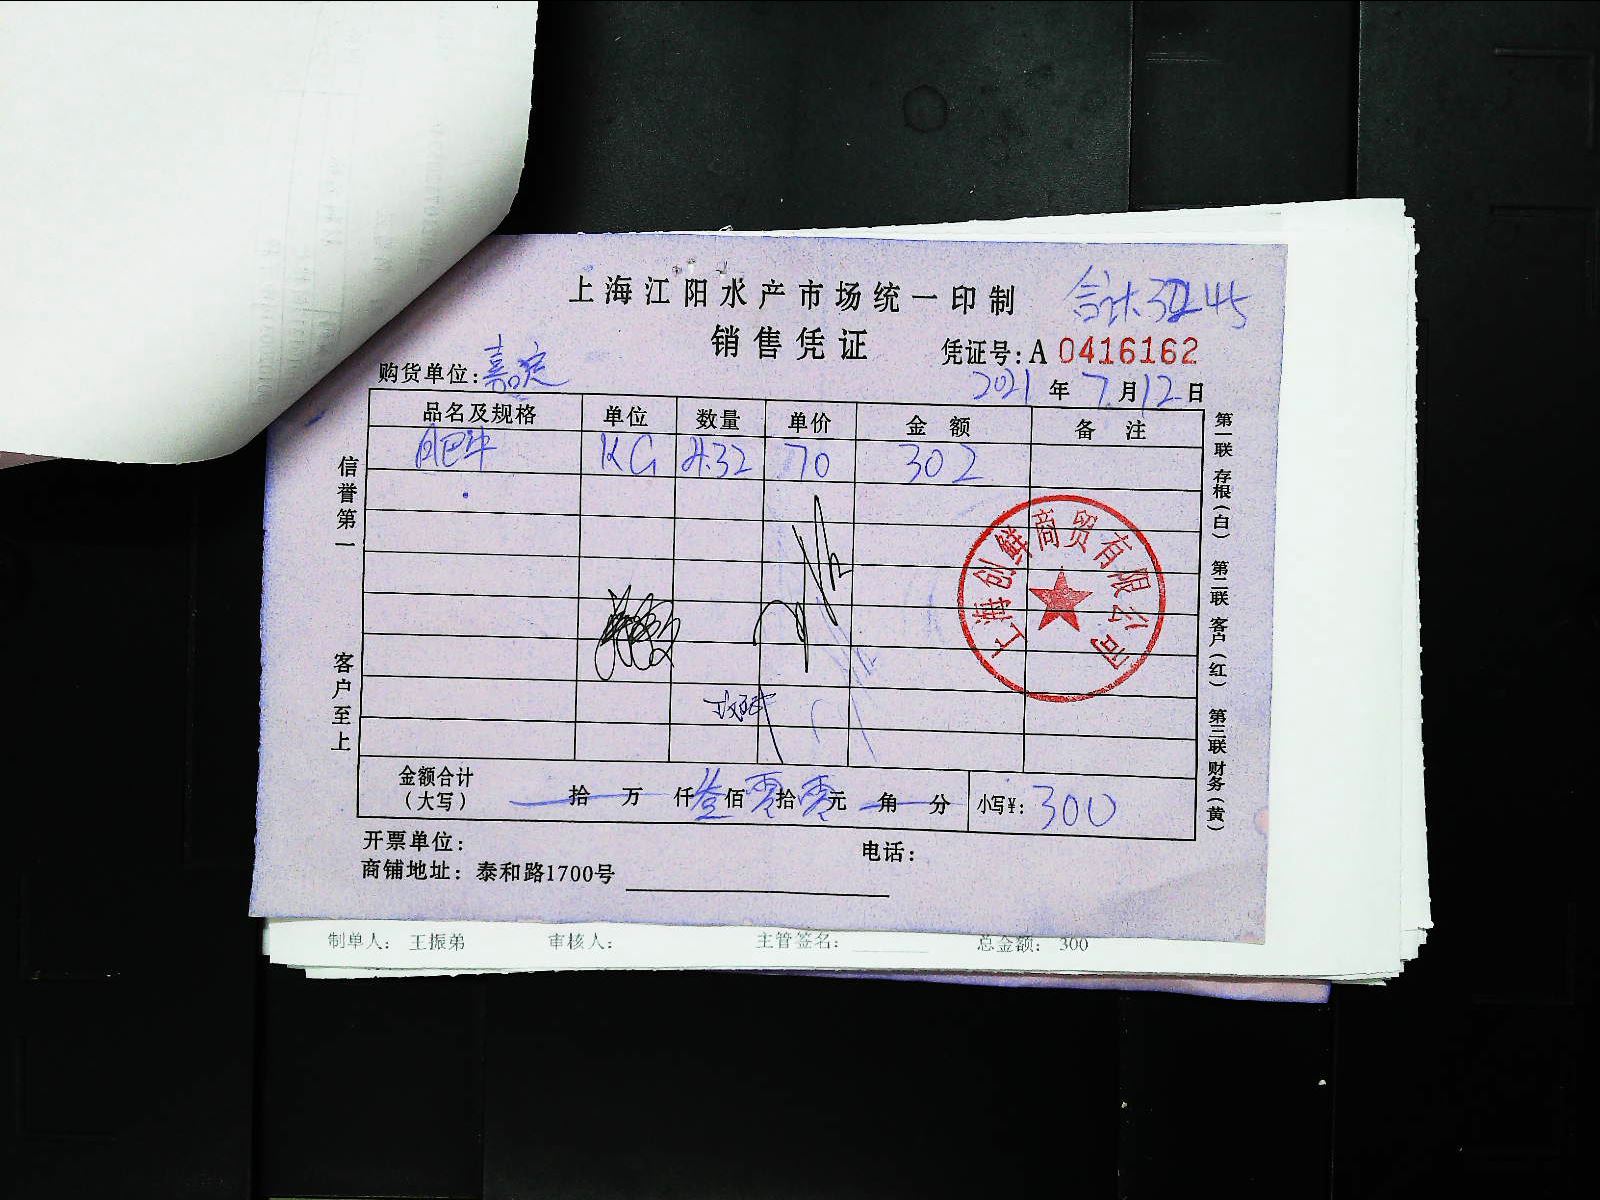 上海江阳水产市场统一印制
合计3245
销售凭证
凭证号:A 0416162
购货单位:嘉定
2021年7月12日
品名及规格 单位 数量 单价 金额 备注
肥牛 KG 4.32 70 302
信誉第一
客户至上
上海创鲜商贸有限公司
第一联 存根(白) 第二联 客户(红) 第三联 财务(黄)
金额合计(大写) 拾 万 仟叁佰零拾零元 角 分 小写¥:300
开票单位: 电话:
商铺地址: 泰和路1700号
制单人: 王振弟 审核人: 主管签名: 总金额: 300